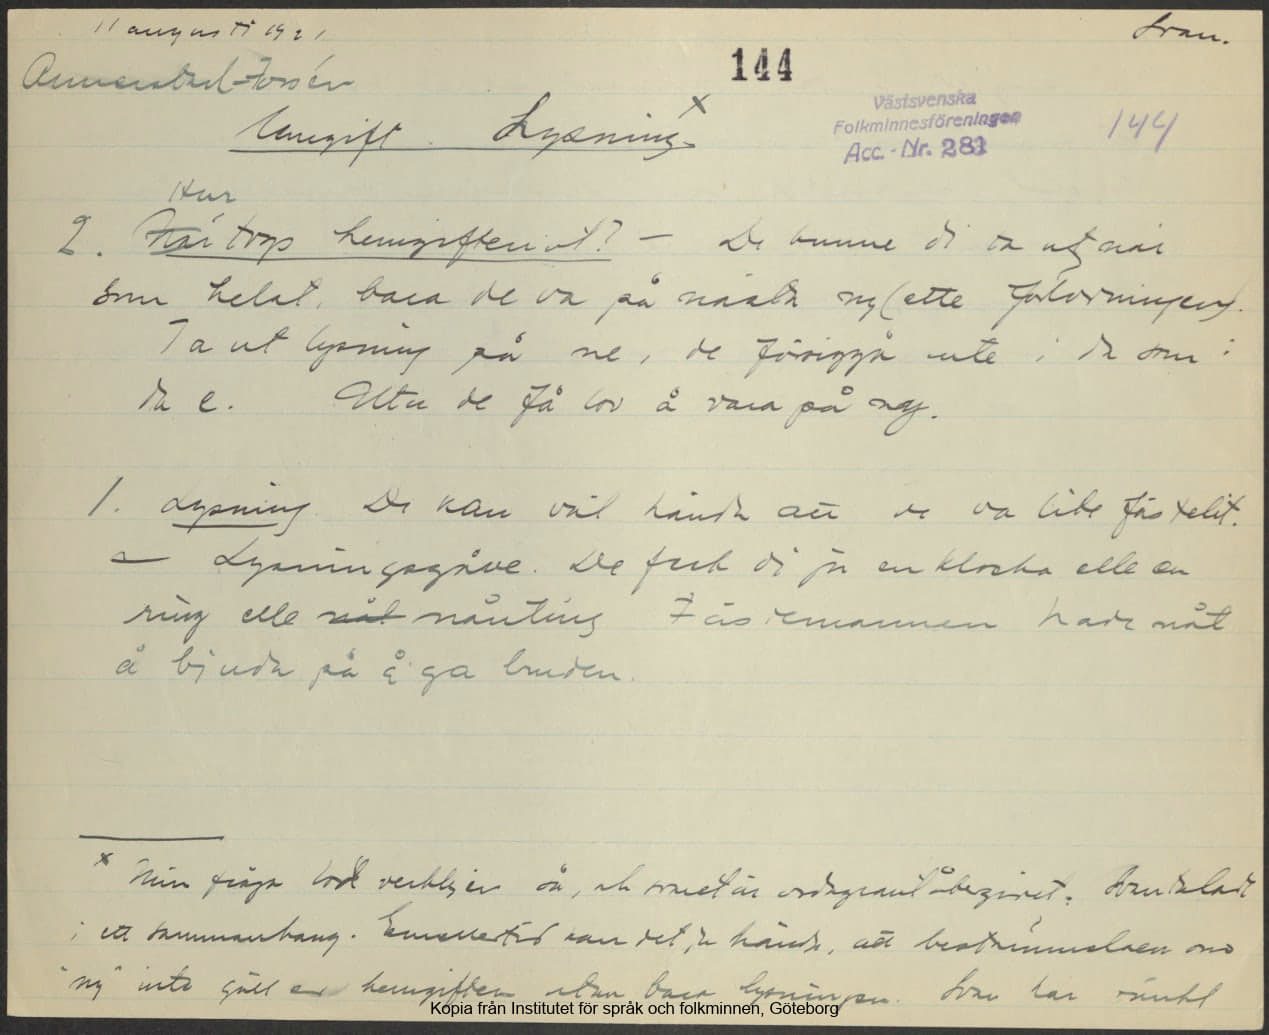 11 augusti 1921
Svan.
144
Västsvenska
Folkminnesföreningen
Acc.-Nr. 283
144
Hemgift. Lysning x
Hur
2. När togs hemgiften ut? — De kunne di ta ut när
som helst, bara de va på nästa ny (ette förlovningen).
Ta ut lysning på ne, de föriggå inte i da som i
da e. Utan de få lov å vara på ny.
1. Lysning. De kan väl hända att de va lite fästelit.
— Lysningsgåve. De feck di ju en klocka elle en
ring elle nåt nånting Fästemannen hade nåt
å bjuda på å ga bruden.
x Min fråga löd verkligen så, och svaret är ordagrant återgivet. Svan talade
i ett sammanhang. Emellertid kan det ju hända, att bestämmelsen om
"ny" inte gällde hemgiften utan bara lysningen. Svan har
Kopia från Institutet för språk och folkminnen, Göteborg